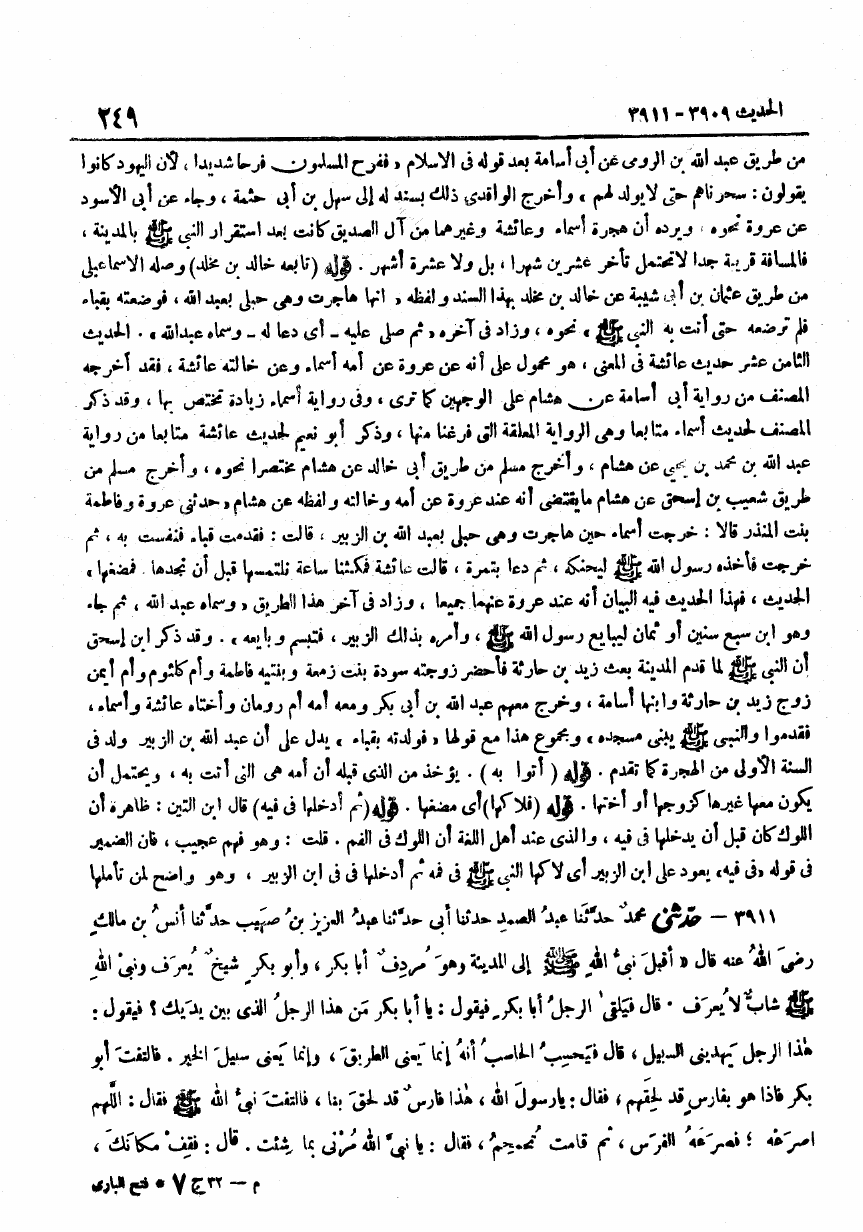 الحديث ٣٩٠٩ - ٣٩١١
٢٤٩
من طريق عبد الله بن الرومى عن أبى أسامة بعد قوله فى الاسلام « ففرح المسلمون فرحا شديدا ، لأن اليهود كانوا
يقولون : سحرناهم حتى لا يولد لهم » وأخرج الواقدى ذلك بسند له إلى سهل بن أبى حثمة ، وجاء عن أبى الأسود
عن عروة نحوه ، ويرده أن هجرة أسماء وعائشة وغيرهما من آل الصديق كانت بعد استقرار النبى ﷺ بالمدينة ،
فالمسافة قريبة جدا لا تحتمل تأخر عشرين شهرا ، بل ولا عشرة أشهر . قوله ( تابعه خالد بن مخلد ) وصله الاسماعيلى
من طريق عثمان بن أبى شيبة عن خالد بن مخلد بهذا السند ولفظه « انها هاجرت وهى حبلى بعبد الله ، فوضعته بقباء
فلم ترضعه حتى أتت به النبى ﷺ » نحوه ، وزاد فى آخره « ثم صلى عليه ــ أى دعا له ــ وسماه عبدالله » . الحديث
الثامن عشر حديث عائشة فى المعنى ، هو محمول على أنه عن عروة عن أمه أسماء وعن خالته عائشة ، فقد أخرجه
المصنف من رواية أبى أسامة عن هشام على الوجهين كما ترى ، وفى رواية أسماء زيادة تختص بها ، وقد ذكر
المصنف لحديث أسماء متابعا وهى الرواية المعلقة التى فرغنا منها ، وذكر أبو نعيم لحديث عائشة متابعا من رواية
عبد الله بن محمد بن يحيى عن هشام ، وأخرج مسلم من طريق أبى خالد عن هشام مختصرا نحوه ، وأخرج مسلم من
طريق شعيب بن إسحق عن هشام ما يقتضى أنه عند عروة عن أمه وخالته ولفظه عن هشام « حدثنى عروة وفاطمة
بنت المنذر قالا : خرجت أسماء حين هاجرت وهى حبلى بعبد الله بن الزبير ، قالت : فقدمت قباء فنفست به ، ثم
خرجت فأخذه رسول الله ﷺ ليحنكه ، ثم دعا بتمرة ، قالت عائشة فمكثنا ساعة نلتمسها قبل أن نجدها فمضغها »
الحديث ، فهذا الحديث فيه البيان أنه عند عروة عنهما جميعا ، وزاد فى آخر هذا الطريق « وسماه عبد الله ، ثم جاء
وهو ابن سبع سنين أو ثمان ليبايع رسول الله ﷺ ، وأمره بذلك الزبير ، فتبسم وبايعه » . وقد ذكر ابن إسحق
أن النبى ﷺ لما قدم المدينة بعث زيد بن حارثة فأحضر زوجته سودة بنت زمعة وبنتيه فاطمة وأم كلثوم وأم أيمن
زوج زيد بن حارثة وابنها أسامة ، وخرج معهم عبد الله بن أبى بكر ومعه أمه أم رومان وأختاه عائشة وأسماء ،
فقدموا والنبى ﷺ يبنى مسجده » ومجموع هذا مع قولها « فولدته بقباء » يدل على أن عبد الله بن الزبير ولد فى
السنة الأولى من الهجرة كما تقدم . قوله ( أتوا به ) . يؤخذ من الذى قبله أن أمه هى التى أتت به ، ويحتمل أن
يكون معها غيرها كزوجها أو أختها . قوله ( فلاكها ) أى مضغها . قوله ( ثم أدخلها فى فيه ) قال ابن التين : ظاهره أن
اللوك كان قبل أن يدخلها فى فيه ، والذى عند أهل اللغة أن اللوك فى الفم . قلت : وهو فهم عجيب ، فان الضمير
فى قوله «فى فيه» يعود على ابن الزبير أى لاكها النبى ﷺ فى فمه ثم أدخلها فى فى ابن الزبير ، وهو واضح لمن تأملها
٣٩١١ – حدّثنى محمدٌ حدَّثَنا عبدُ الصمدِ حدثنا أبى حدَّثنا عبدُ العزيز بنُ صهَيب حدَّثنا أنسُ بن مالكٍ
رضىَ اللهُ عنه قال « أقبلَ نبىُّ اللهِ ﷺ إلى المدينة وهوَ مُردِفٌ أبا بكر ، وأبو بكرٍ شيخٌ يُعرَف ونبىُّ اللهِ
ﷺ شابٌّ لا يُعرَف . قال فيَلقى الرجلُ أبا بكرٍ فيقول : يا أبا بكر مَن هذا الرجلُ الذى بين يدَيك ؟ فيقول :
هٰذا الرجل يَهدينى السبيل ، قال فيَحسِبُ الحاسبُ أنهُ إنما يَعنى الطريقَ ، وإنما يَعنى سبيلَ الخير . فالتفتَ أبو
بكر فاذا هو بفارسٍ قد لحِقَهم ، فقال : يارسولَ الله ، هٰذا فارسٌ قد لحقَ بنا ، فالتفتَ نبىُّ الله ﷺ فقال : اللّهم
اصرَعْه ؛ فصرَعَهُ الفرَس ، ثم قامت تُحمحِمُ ، فقال : يا نبىَّ الله مُرْنى بما شِئت . قال : فقِفْ مكانَكَ ،
م — ٣٢ ج ٧ * فتح البارى